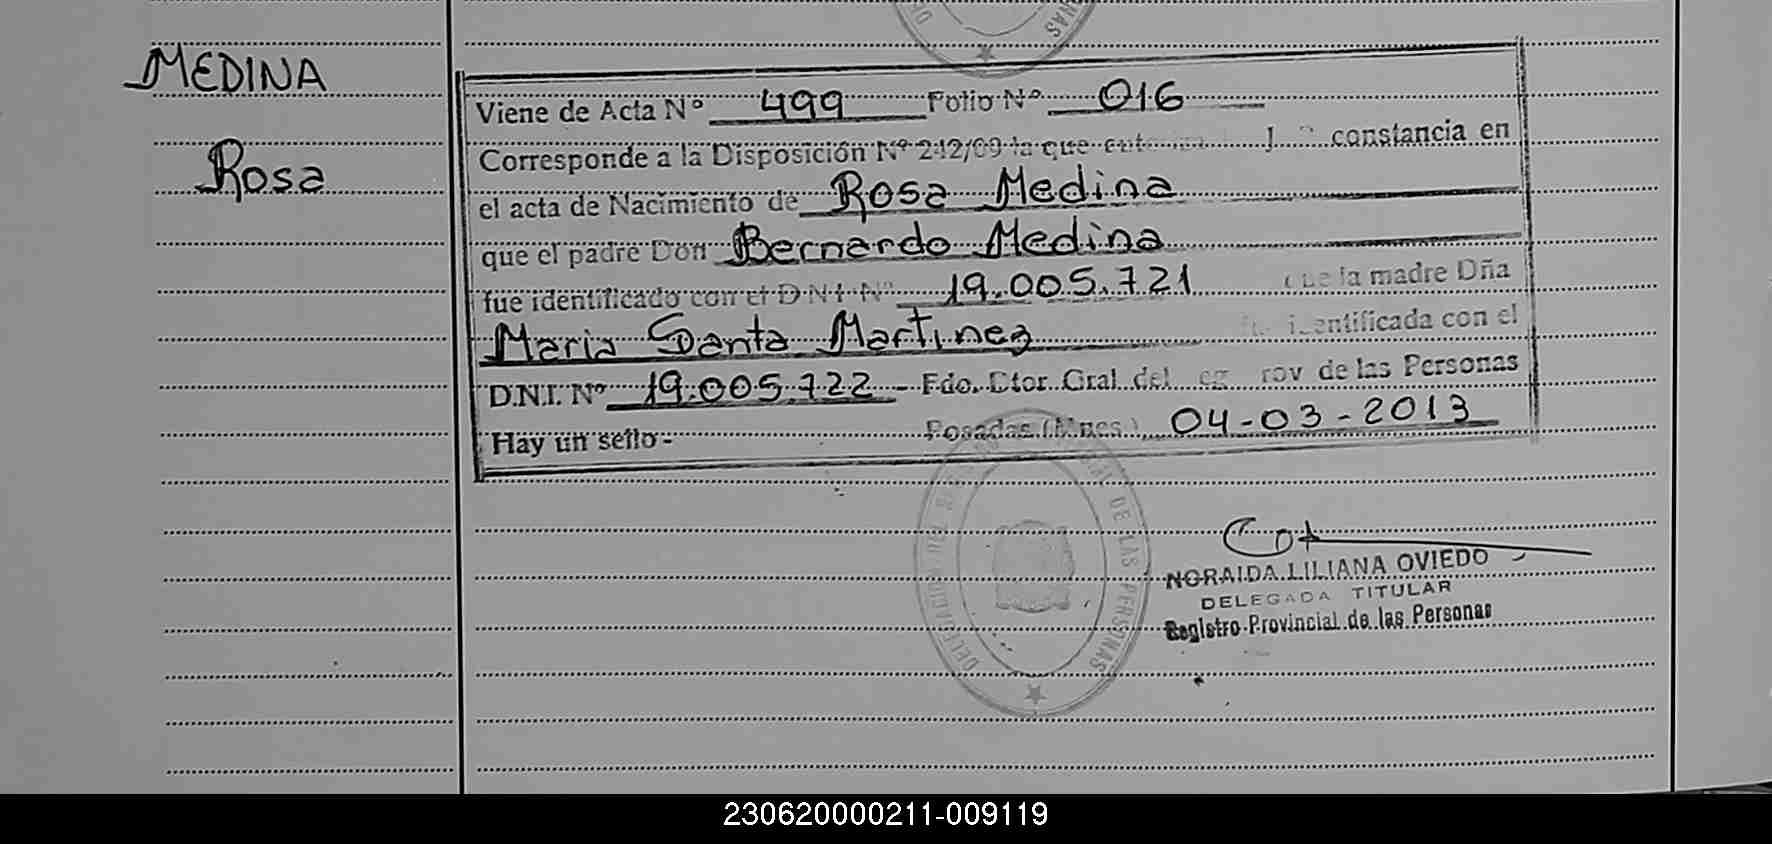 MEDINA
Rosa
Viene de Acta Nº 499 Folio Nº 016
Corresponde a la Disposición Nº 242/09 la que constancia en
el acta de Nacimiento de Rosa Medina
que el padre Don Bernardo Medina
fue identificado con el D N I Nº 19.005.721 que la madre Dña
Maria Santa Martinez identificada con el
D.N.I. Nº 19.005.722 - Fdo. Dtor. Gral del de las Personas
Hay un sello - Posadas (Mnes.) 04-03-2013
DELEGACION DEL DE LAS PERSONAS
NORAIDA LILIANA OVIEDO
DELEGADA TITULAR
Registro Provincial de las Personas
230620000211-009119